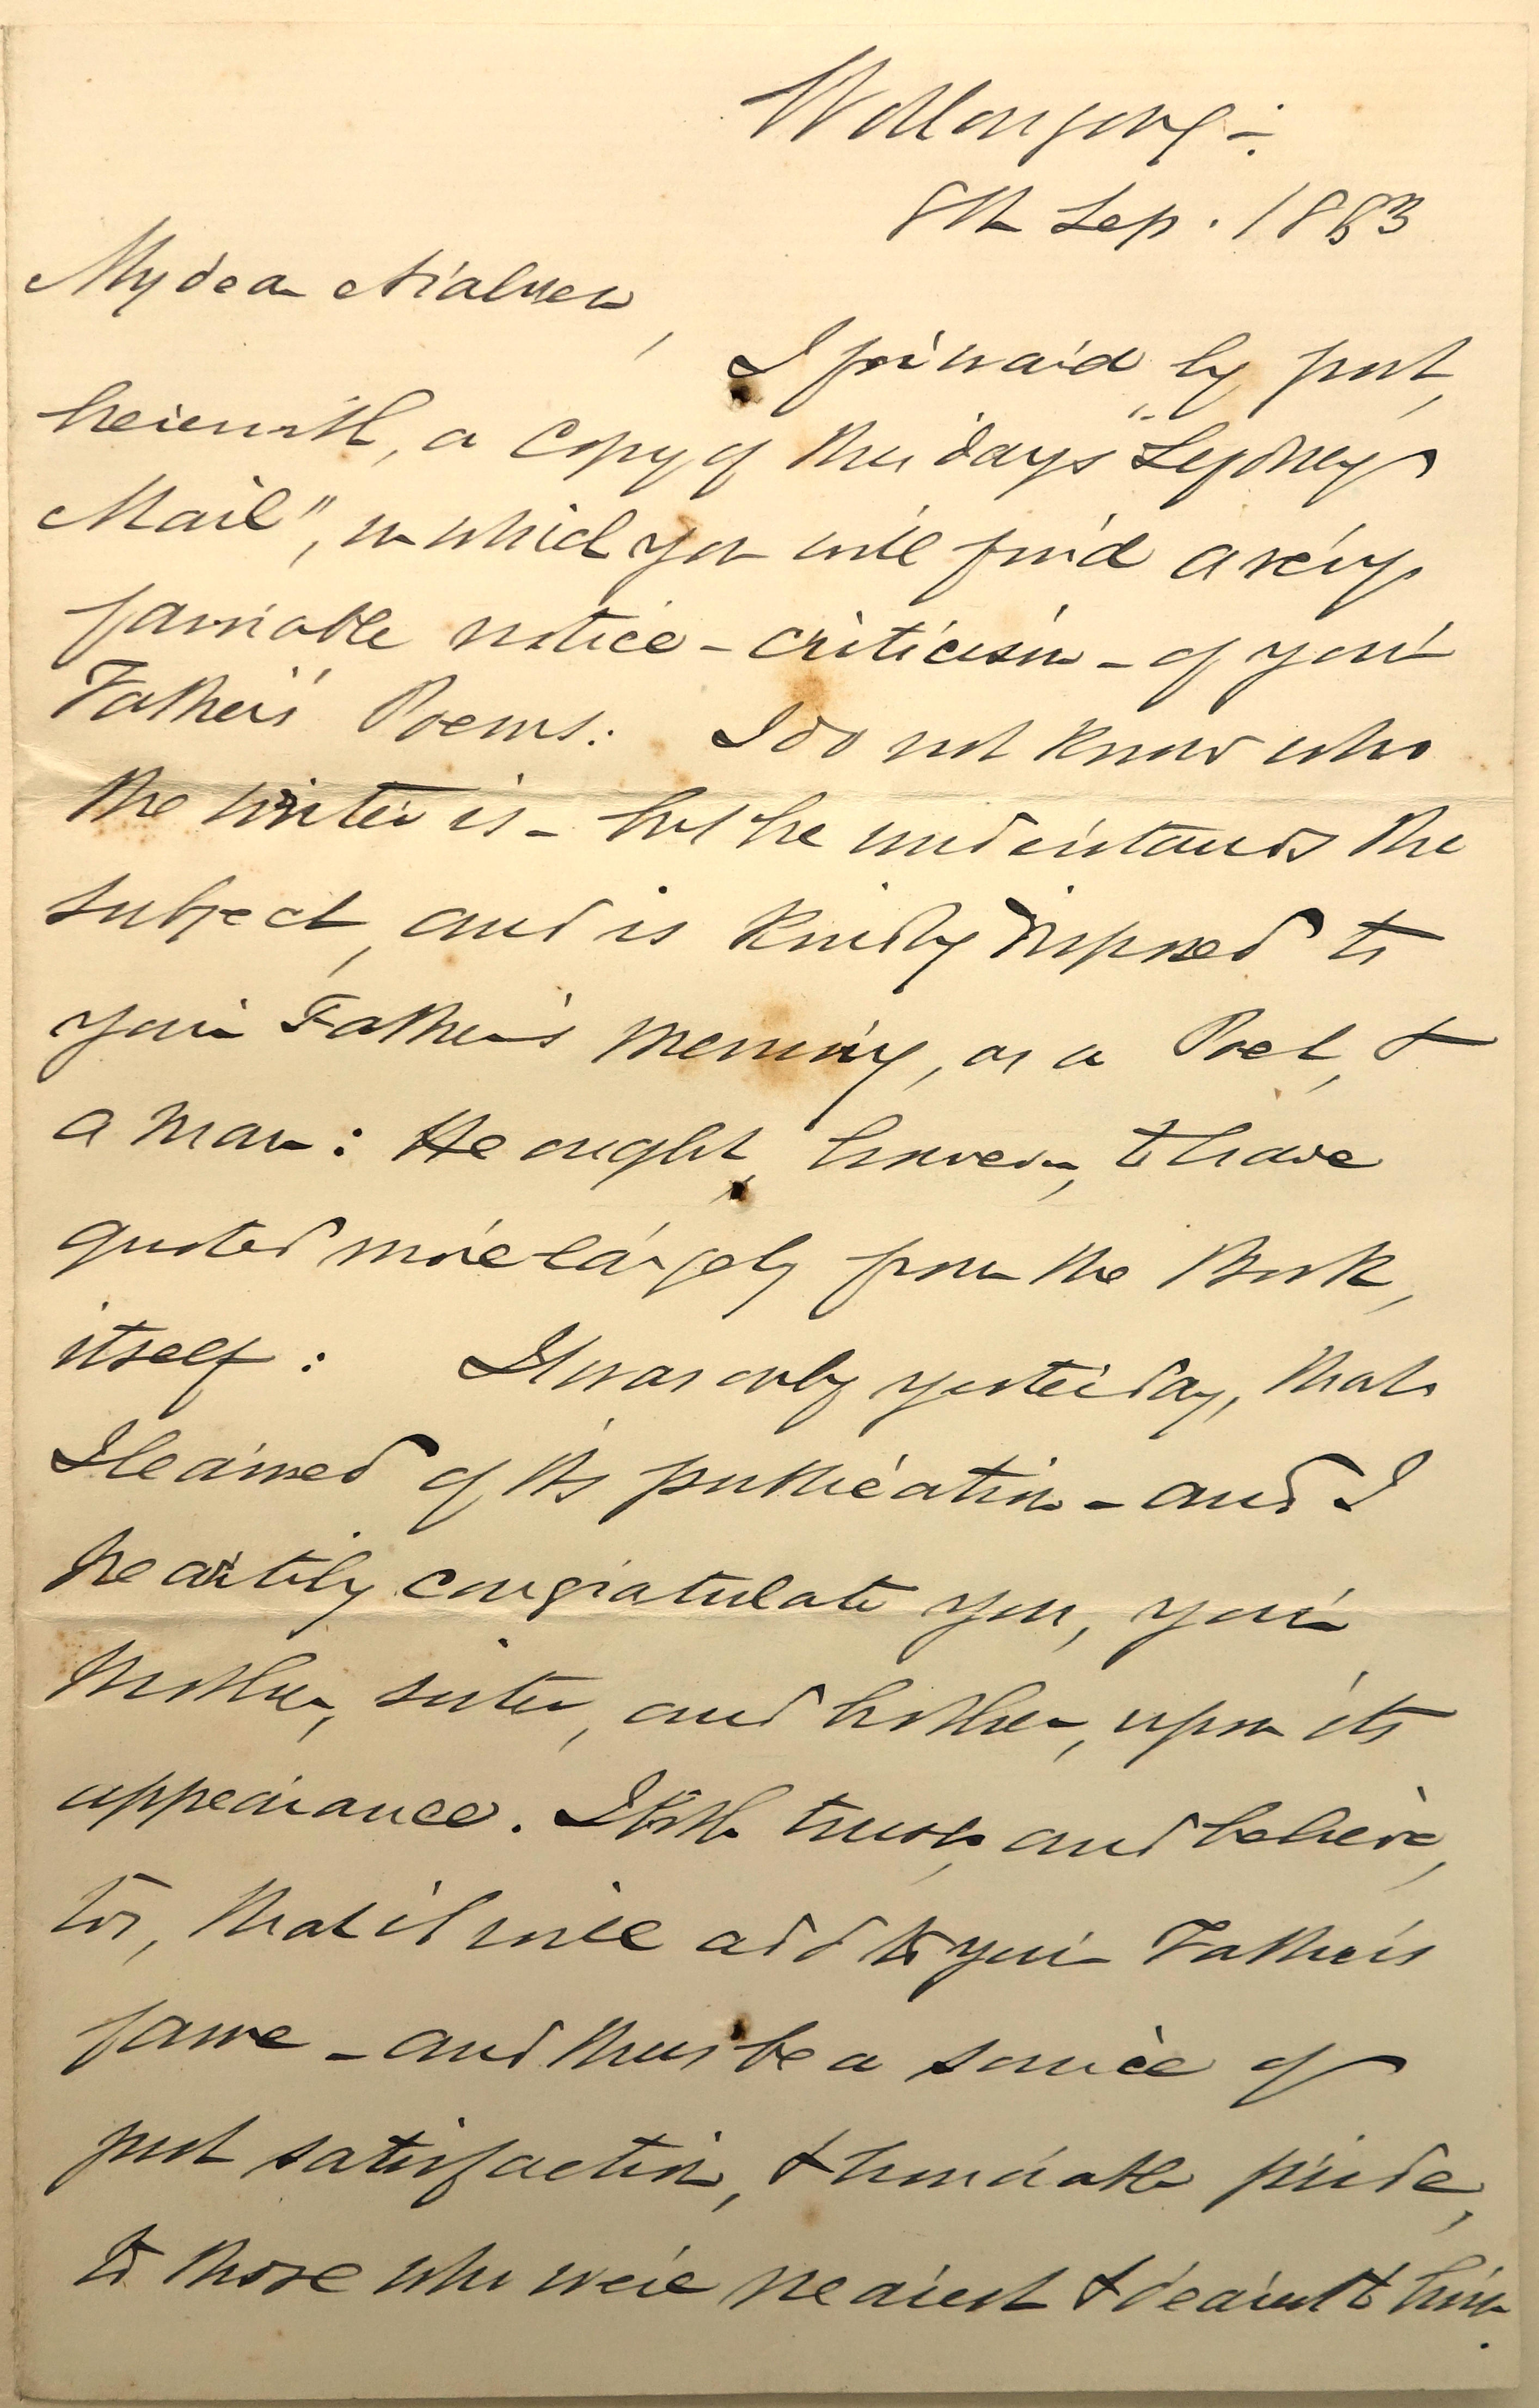 Wollongong :
8th Sep. 1883
My dear Araluen,
I forward by post,
herewith, a copy of this days "Sydney
Mail", in which you will find a very
favorable notice - criticism - of your
Father's Poems: I do not know who
the writer is - but he understands the
subject, and is kindly disposed to
your Father's memory, as a Poet, &
a man: He ought, however, to have
quoted more largely from the Book,
itself: It was only yesterday, that
I learned of its publication - and I
heartily congratulate you, your
Mother, sister, and brother, upon its
appearance. I both trust, and believe,
too, that it will add to your Father's
fame - and thus be a source of
just satisfaction, & honorable pride,
to those who were nearest & dearest to him.